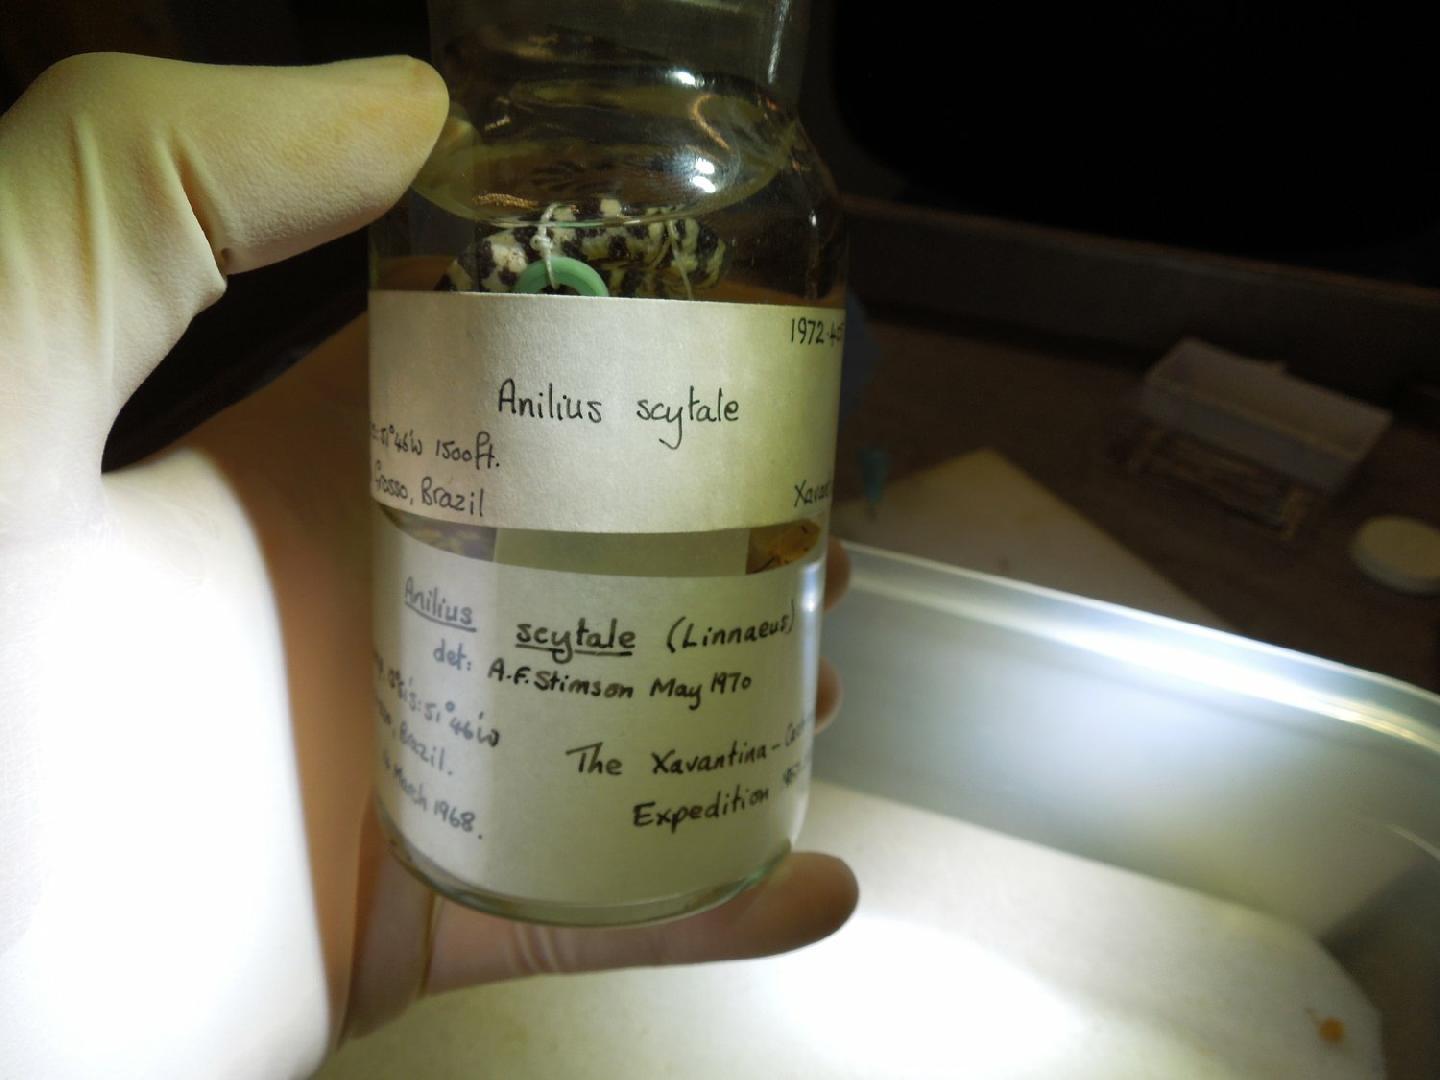 1972·4
Anilius scytale
51°46'W 1500ft.
Grosso, Brazil
Anilius scytale (Linnaeus)
det: A.F. Stimson May 1970
51°46'W
Brazil.
March 1968.
The Xavantina-
Expedition